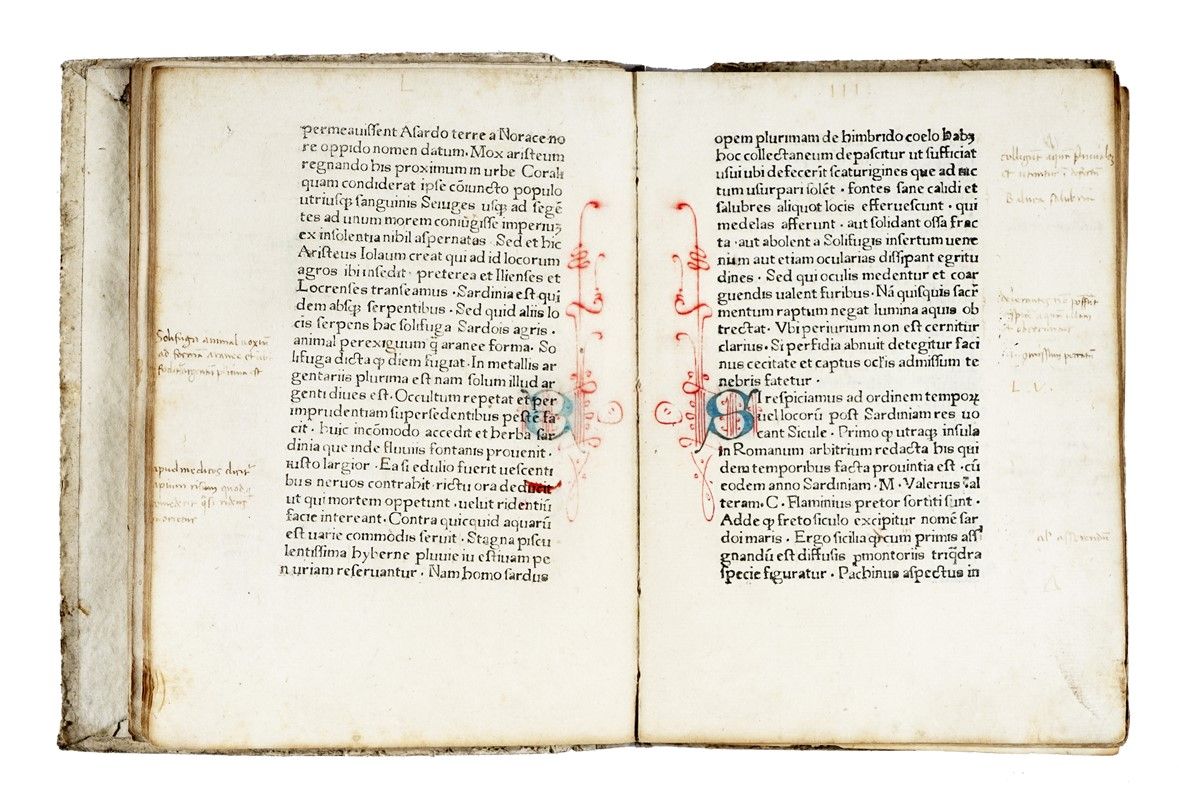 L
permeauissent Asardo terre a Norace no
re oppido nomen datum. Mox aristeum
regnando his proximum in urbe Corali
quam condiderat ipse cõiuncto populo
utriusq̃ sanguinis Seiuges usq̃ ad segẽ
tes ad unum morem coniũgisse imperiuʒ
ex insolentia nibil aspernatas · Sed et hic
Aristeus Iolaum creat qui ad id locorum
agros ibi insedit · preterea et Ilienses et
Locrenses transeamus · Sardinia est qui
dem absq̃ serpentibus · Sed quid aliis lo
cis serpens hac solifuga Sardois agris ·
animal perexiguum q̃ aranee forma · So
lifuga dicta ꝙ diem fugiat · In metallis ar
gentariis plurima est nam solum illud ar
genti diues est · Occultum repetat et per
imprudentiam supersedentibus peste fa
cit · huic incõmodo accedit et herba sar
dinia que inde fluuiis fontanis prouenit ·
iusto largior · Ea si edulio fuerit uescenti
bus neruos contrahit · rictu ora deducit
ut qui mortem oppetunt · uelut ridentiũ
facie intereant · Contra quicquid aquarũ
est uarie commodis seruit · Stagna piscu
lentissima hyberne pluuie iu estiuam pe
n uriam reseruantur · Nam homo sardus
Solifuga animal noxium
IIII
opem plurimam de himbrido coelo habʒ
hoc collectaneum depascitur ut sufficiat
usui ubi defecerit scaturigines que ad iac
tum usurpari solẽt · fontes sane calidi et
salubres aliquot locis efferuescunt · qui
medelas afferunt · aut solidant ossa frac
ta · aut abolent a Solifugis insertum uene
nium aut etiam ocularias dissipant egritu
dines · Sed qui oculis medentur et coar
guendis ualent furibus · Nã quisquis sacr̃
mentum raptum negat lumina aquis ob
trectat · Vbi periurium non est cernitur
clarius · Si perfidia abnuit detegitur faci
nus cecitate et captus oclis admissum te
nebris fatetur ·
SI respiciamus ad ordinem tempoꝝ
uel locorũ post Sardiniam res uo
cant Sicule · Primo ꝙ utraqʒ insula
in Romanum arbitrium redacta his qui
dem temporibus facta prouintia est · cũ
eodem anno Sardiniam · M · Valerius
teram · C · Flaminius pretor sortiti sunt ·
Adde ꝙ freto siculo excipitur nomẽ sar
doi maris · Ergo sicilia cum primis ass
gnandũ est diffusis ꝓmontoriis triq̃dra
specie figuratur · Pachinus aspectus in
Balnea salubria
L . V .